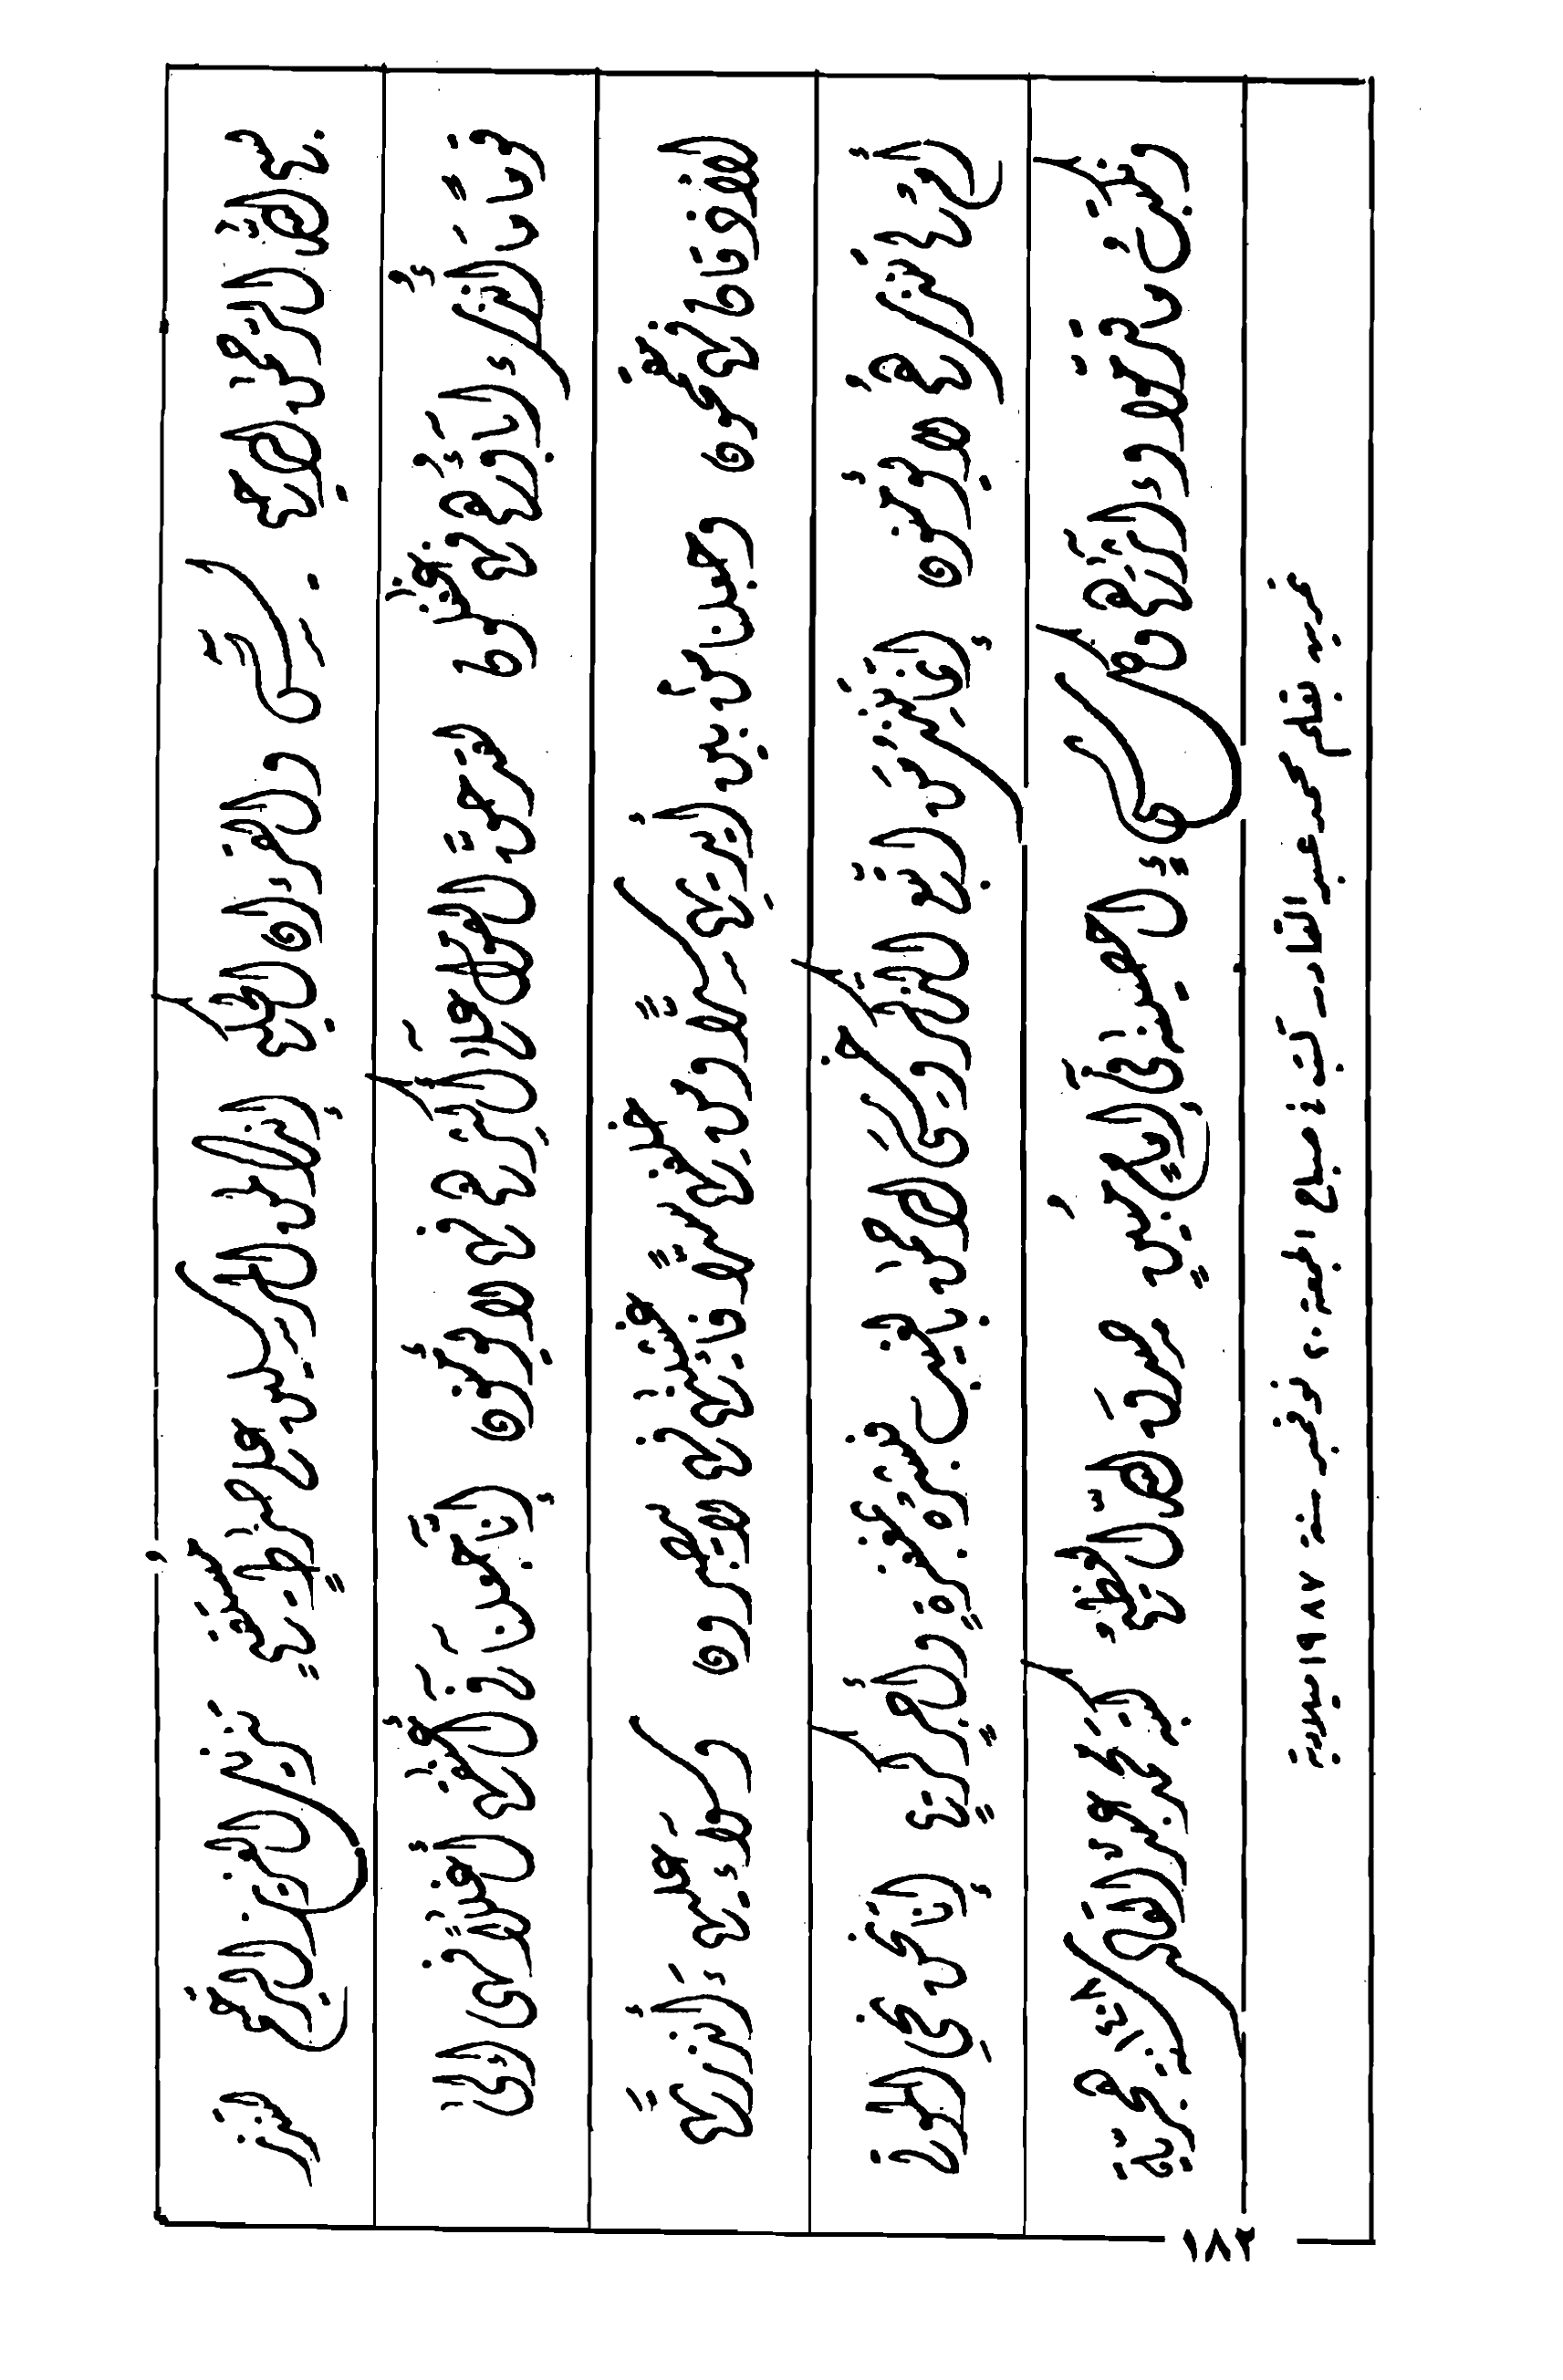 بسم الله الرحمن الرحيم . يس والقرءان الحكيم إنك لمن المرسلين على صراط مستقيم تنزيل العزيز الرحيم لتنذر
قوما ما أنذر ءاباؤهم فهم غفلون لقد حق القول على أكثرهم فهم لا يؤمنون إنا جعلنا فى أعنقهم أغللا فهى إلى
الأذقان فهم مقمحون وجعلنا من بين أيديهم سدا ومن خلفهم سدا فأغشينهم فهم لا يبصرون وسواء عليهم ءأنذرتهم
أم لم تنذرهم لا يؤمنون إنما تنذر من اتبع الذكر وخشى الرحمن بالغيب فبشره بمغفرة وأجر كريم إنا نحن نحى الموتى
ونكتب ما قدموا وءاثرهم وكل شىء أحصينه فى إمام مبين صدق الله العظيم كتبه محمد عبد القادر سنة هجرية
بقلم محمد عبد القادر كتبه فى صباح الجمعة ٢٠ نوفمبر سنة ١٩٨٧ ميلادية
١٨٢